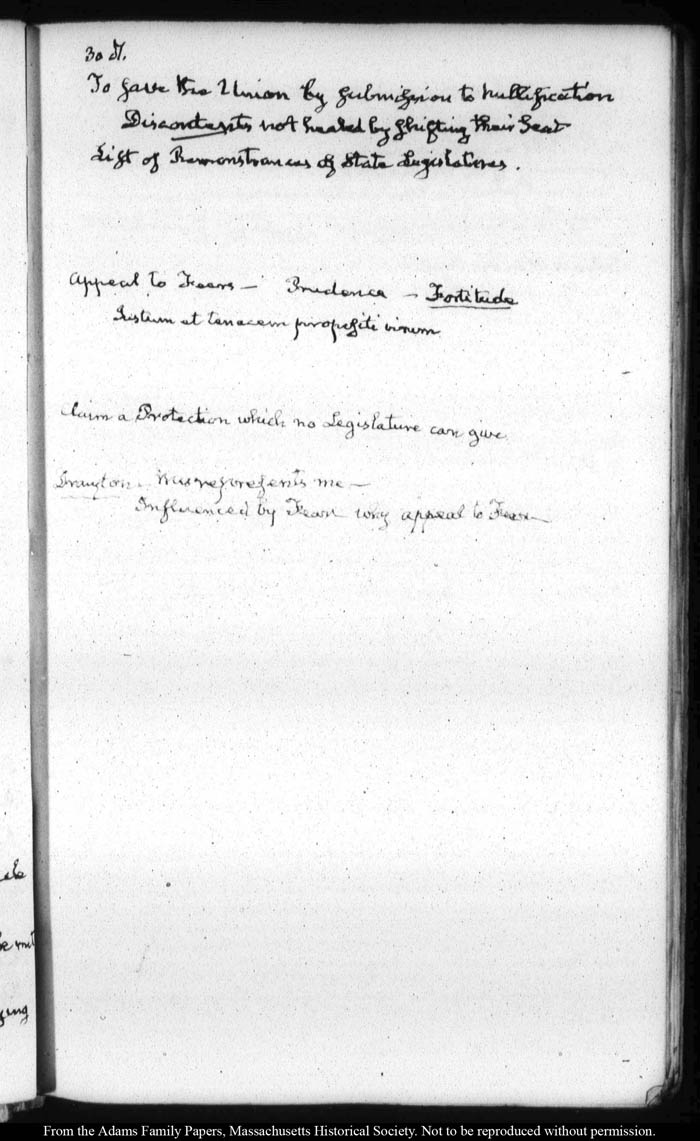 30 
To save the Union by submission to Nullification
Discontents not healed by shifting their seat
List of Remonstrances of State Legislatures.
Appeal to Fears — Prudence — Fortitude
Justum et tenacem propositi virum
Claim a Protection which no Legislature can give
Drayton. Misrepresents me —
Influenced by Fear why appeal to Fear
From the Adams Family Papers, Massachusetts Historical Society. Not to be reproduced without permission.